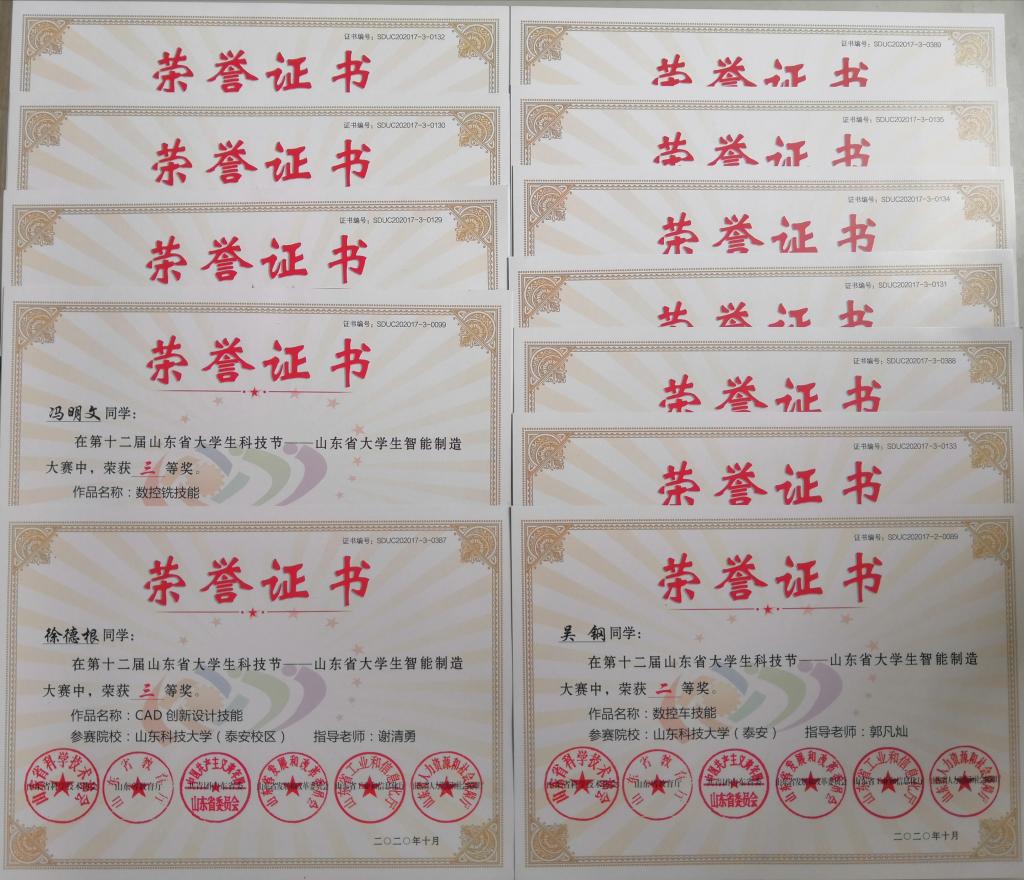 证书编号：SDUC202017-3-0132
荣誉证书
证书编号：SDUC202017-3-0130
荣誉证书
证书编号：SDUC202017-3-0129
荣誉证书
证书编号：SDUC202017-3-0099
荣誉证书
冯明文同学：
在第十二届山东省大学生科技节——山东省大学生智能制造
大赛中，荣获 三 等奖。
作品名称：数控铣技能
证书编号：SDUC202017-3-0387
荣誉证书
徐德根同学：
在第十二届山东省大学生科技节——山东省大学生智能制造
大赛中，荣获 三 等奖。
作品名称：CAD 创新设计技能
参赛院校：山东科技大学（泰安校区） 指导老师：谢清勇
山东省科学技术协会
山东省教育厅
山东省委员会
二〇二〇年十月
证书编号：SDUC202017-3-0389
荣誉证书
证书编号：SDUC202017-3-0135
荣誉证书
证书编号：SDUC202017-3-0134
荣誉证书
证书编号：SDUC202017-3-0131
荣誉证书
证书编号：SDUC202017-3-0388
荣誉证书
证书编号：SDUC202017-3-0133
荣誉证书
证书编号：SDUC202017-2-0089
荣誉证书
吴 钢同学：
在第十二届山东省大学生科技节——山东省大学生智能制造
大赛中，荣获 二 等奖。
作品名称：数控车技能
参赛院校：山东科技大学（泰安） 指导老师：郭凡灿
山东省科学技术协会
山东省教育厅
山东省委员会
二〇二〇年十月